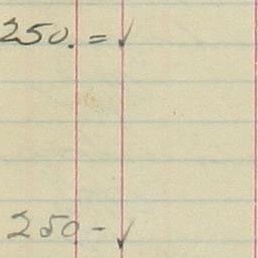 250. = ✓
250 - ✓